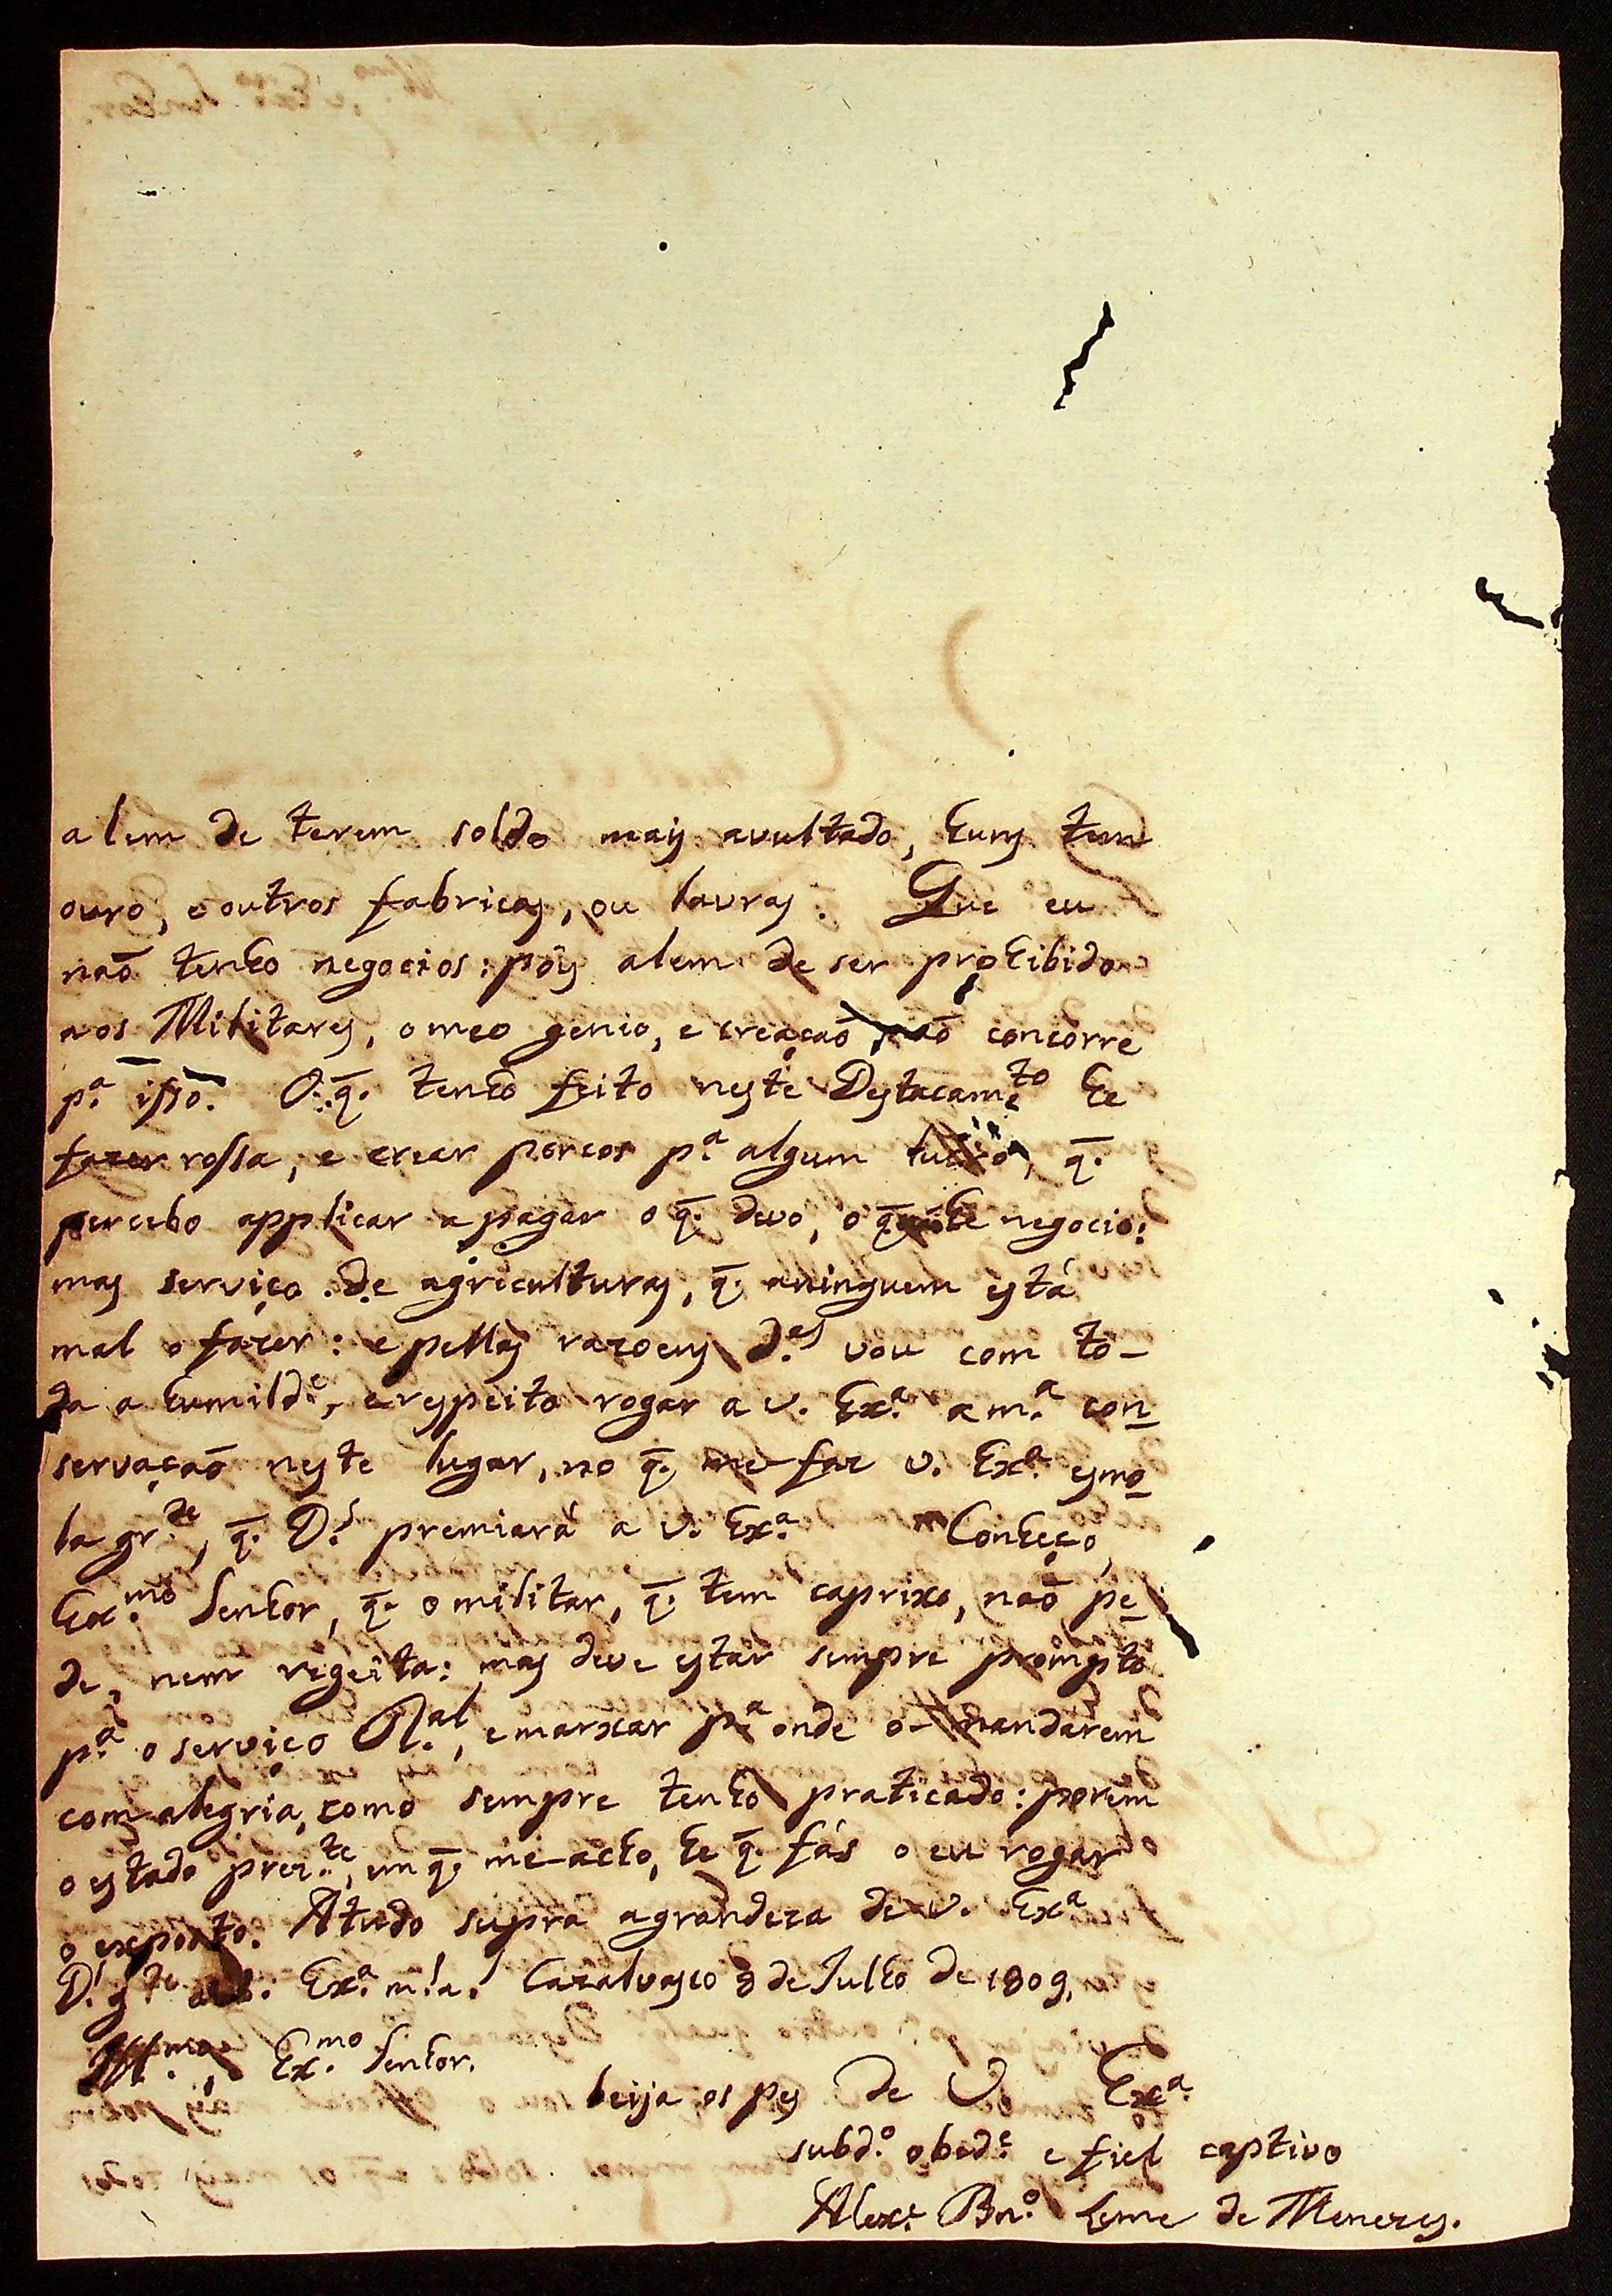 alem de terem soldo mais avultado, huns tem
ouro, e outros fabricas, ou lavras. Que eu
naõ tenho negocios: pois alem de ser prohibido
aos Militares, o meo genio, e creaçaõ naõ concorre
p.ª isso. O q̄. tenho feito neste Destacam.to he
fazer rossa, e crear porcos p.ª algum q̄.
percebo applicar a pagar o q̄. devo, o q̄ he negocio:
mas serviço de agriculturas, q̄. a ninguem está
mal o fazer: e pellas razoens d.as vou com to-
da a humild.e, e respeito rogar a V. Ex.ª a m.ª con
servaçaõ neste lugar, no q̄. me faz V. Ex.ª esmo
la gr.de, q̄. D.s premiará a V. Ex.ª Conheço,
Ex.mo Senhor, q̄. o militar, q̄. tem caprixo, naõ pe
de, nem regeita: mas deve estar sempre prompto
p.ª o serviço R.al, e marxar p.ª onde o- mandarem
com alegria, como sempre tenho praticado: porem
o estado prez.te, em q̄. me-acho, he q̄. fás o eu rogar
o exposto. A tudo supra a grandeza de V. Ex.ª
D.s g.de a V. Ex.ª m.s a.s Cazalvasco 8 de Julho de 1809,
Ill.mo, e Ex.mo Senhor.
beija os pes de V. Ex.ª
subd.o obed.e e fiel captivo
Alex.e Bn.o Leme de Menezes.